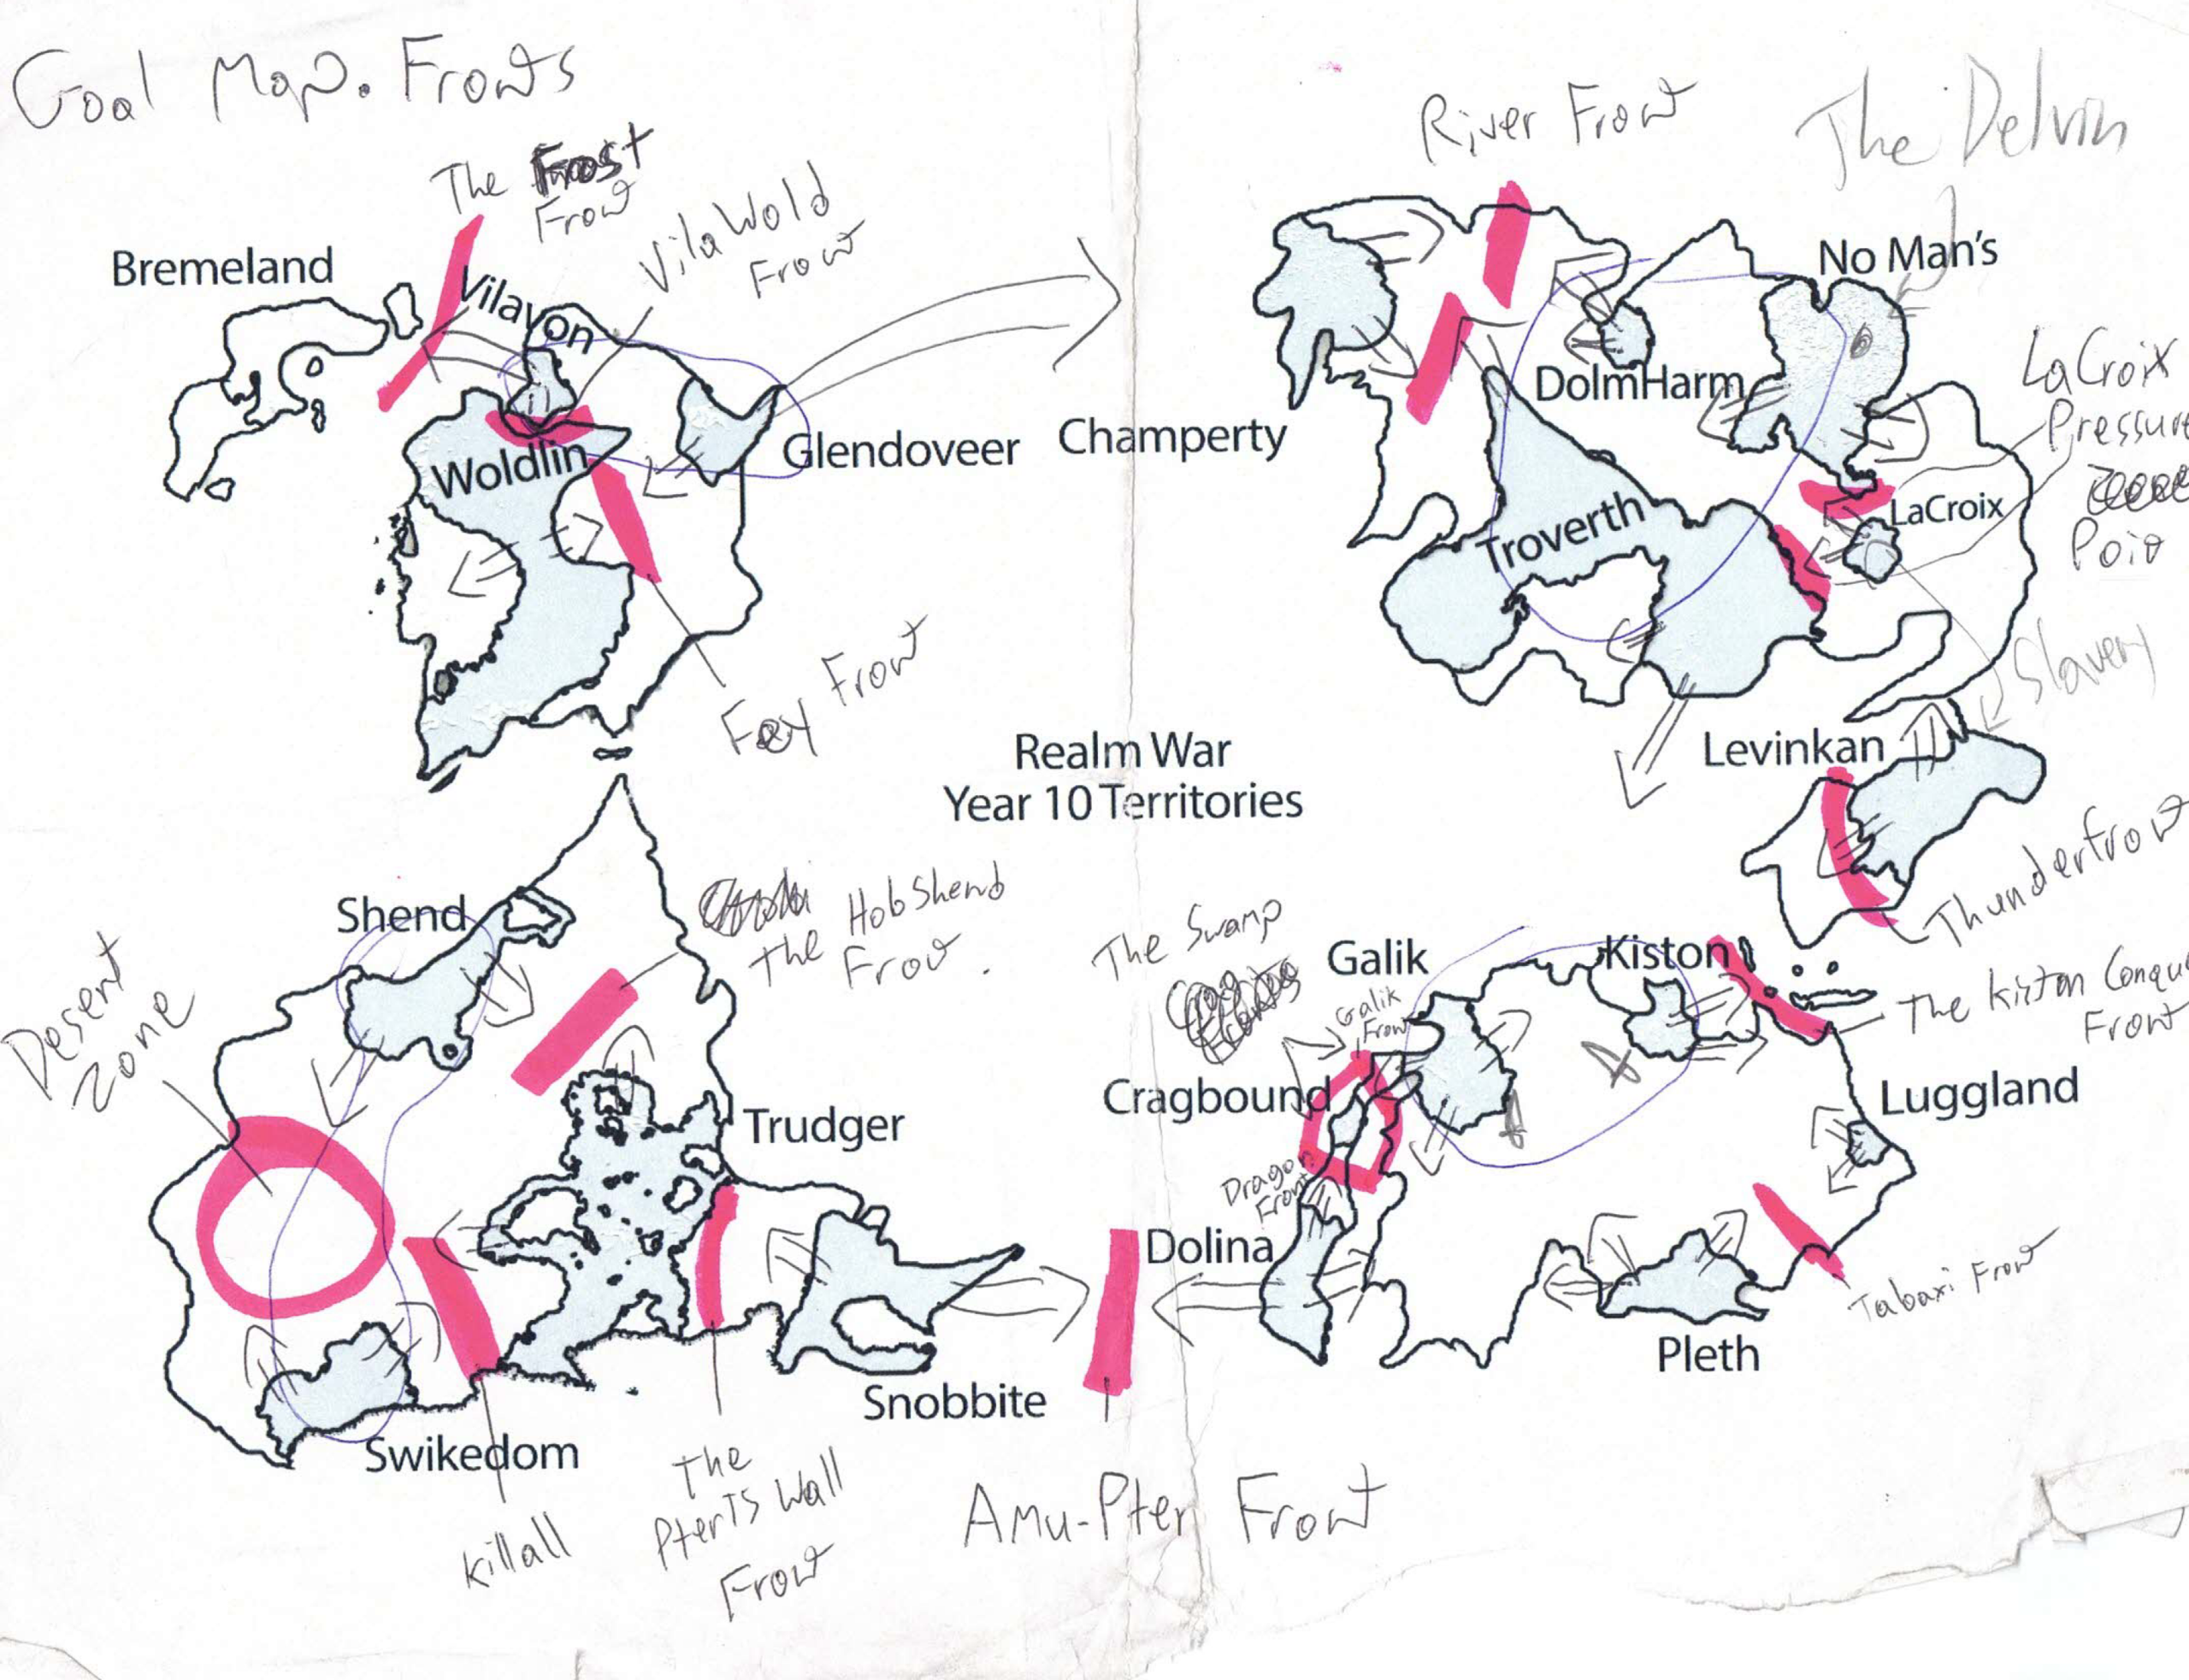 Goal Map. Fronts
The Frost
Front
VilaWold
Front
Bremeland
Vilavon
Woldlin
Glendoveer
Fey Front
River Front
The Delvin
No Man's
Champerty
DolmHarm
LaCroix
Pressure
Point
LaCroix
Troverth
Slavery
Realm War
Year 10 Territories
Levinkan
Thunderfront
Shend
The HobShend
Front.
Desert
Zone
Trudger
Swikedom
Snobbite
Killall
The
PterTs Wall
Front
Amu-Pter Front
The Swamp
Galik
Galik
Front
Kiston
The Kiston Conque
Front
Cragbound
Luggland
Dragon
Front
Dolina
Pleth
Tabaxi Front